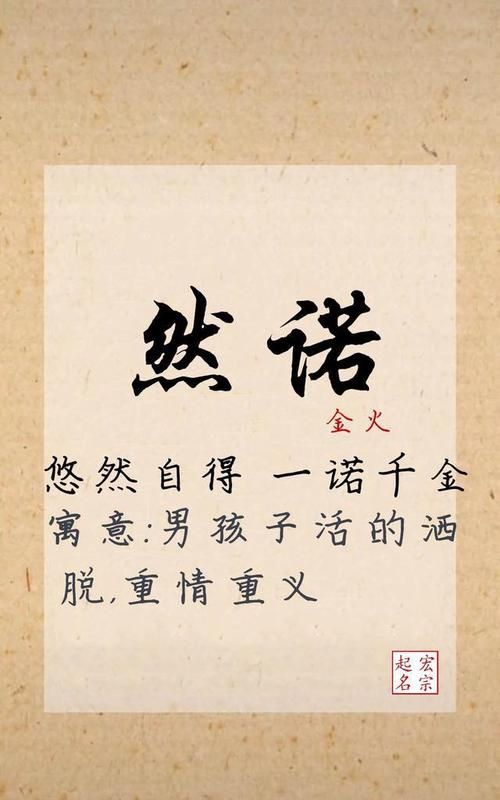 然诺
金火
悠然自得 一诺千金
寓意:男孩子活的洒
脱,重情重义
宏宗
起名